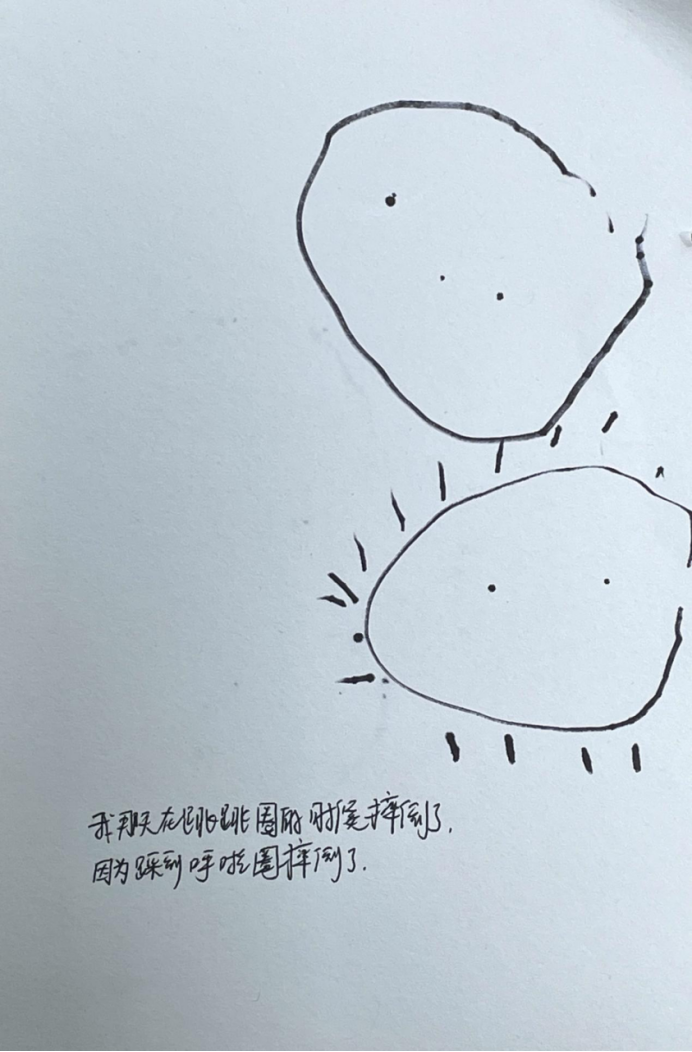 我那天在跳跳圈的时候摔倒了.
因为踩到呼啦圈摔倒了.